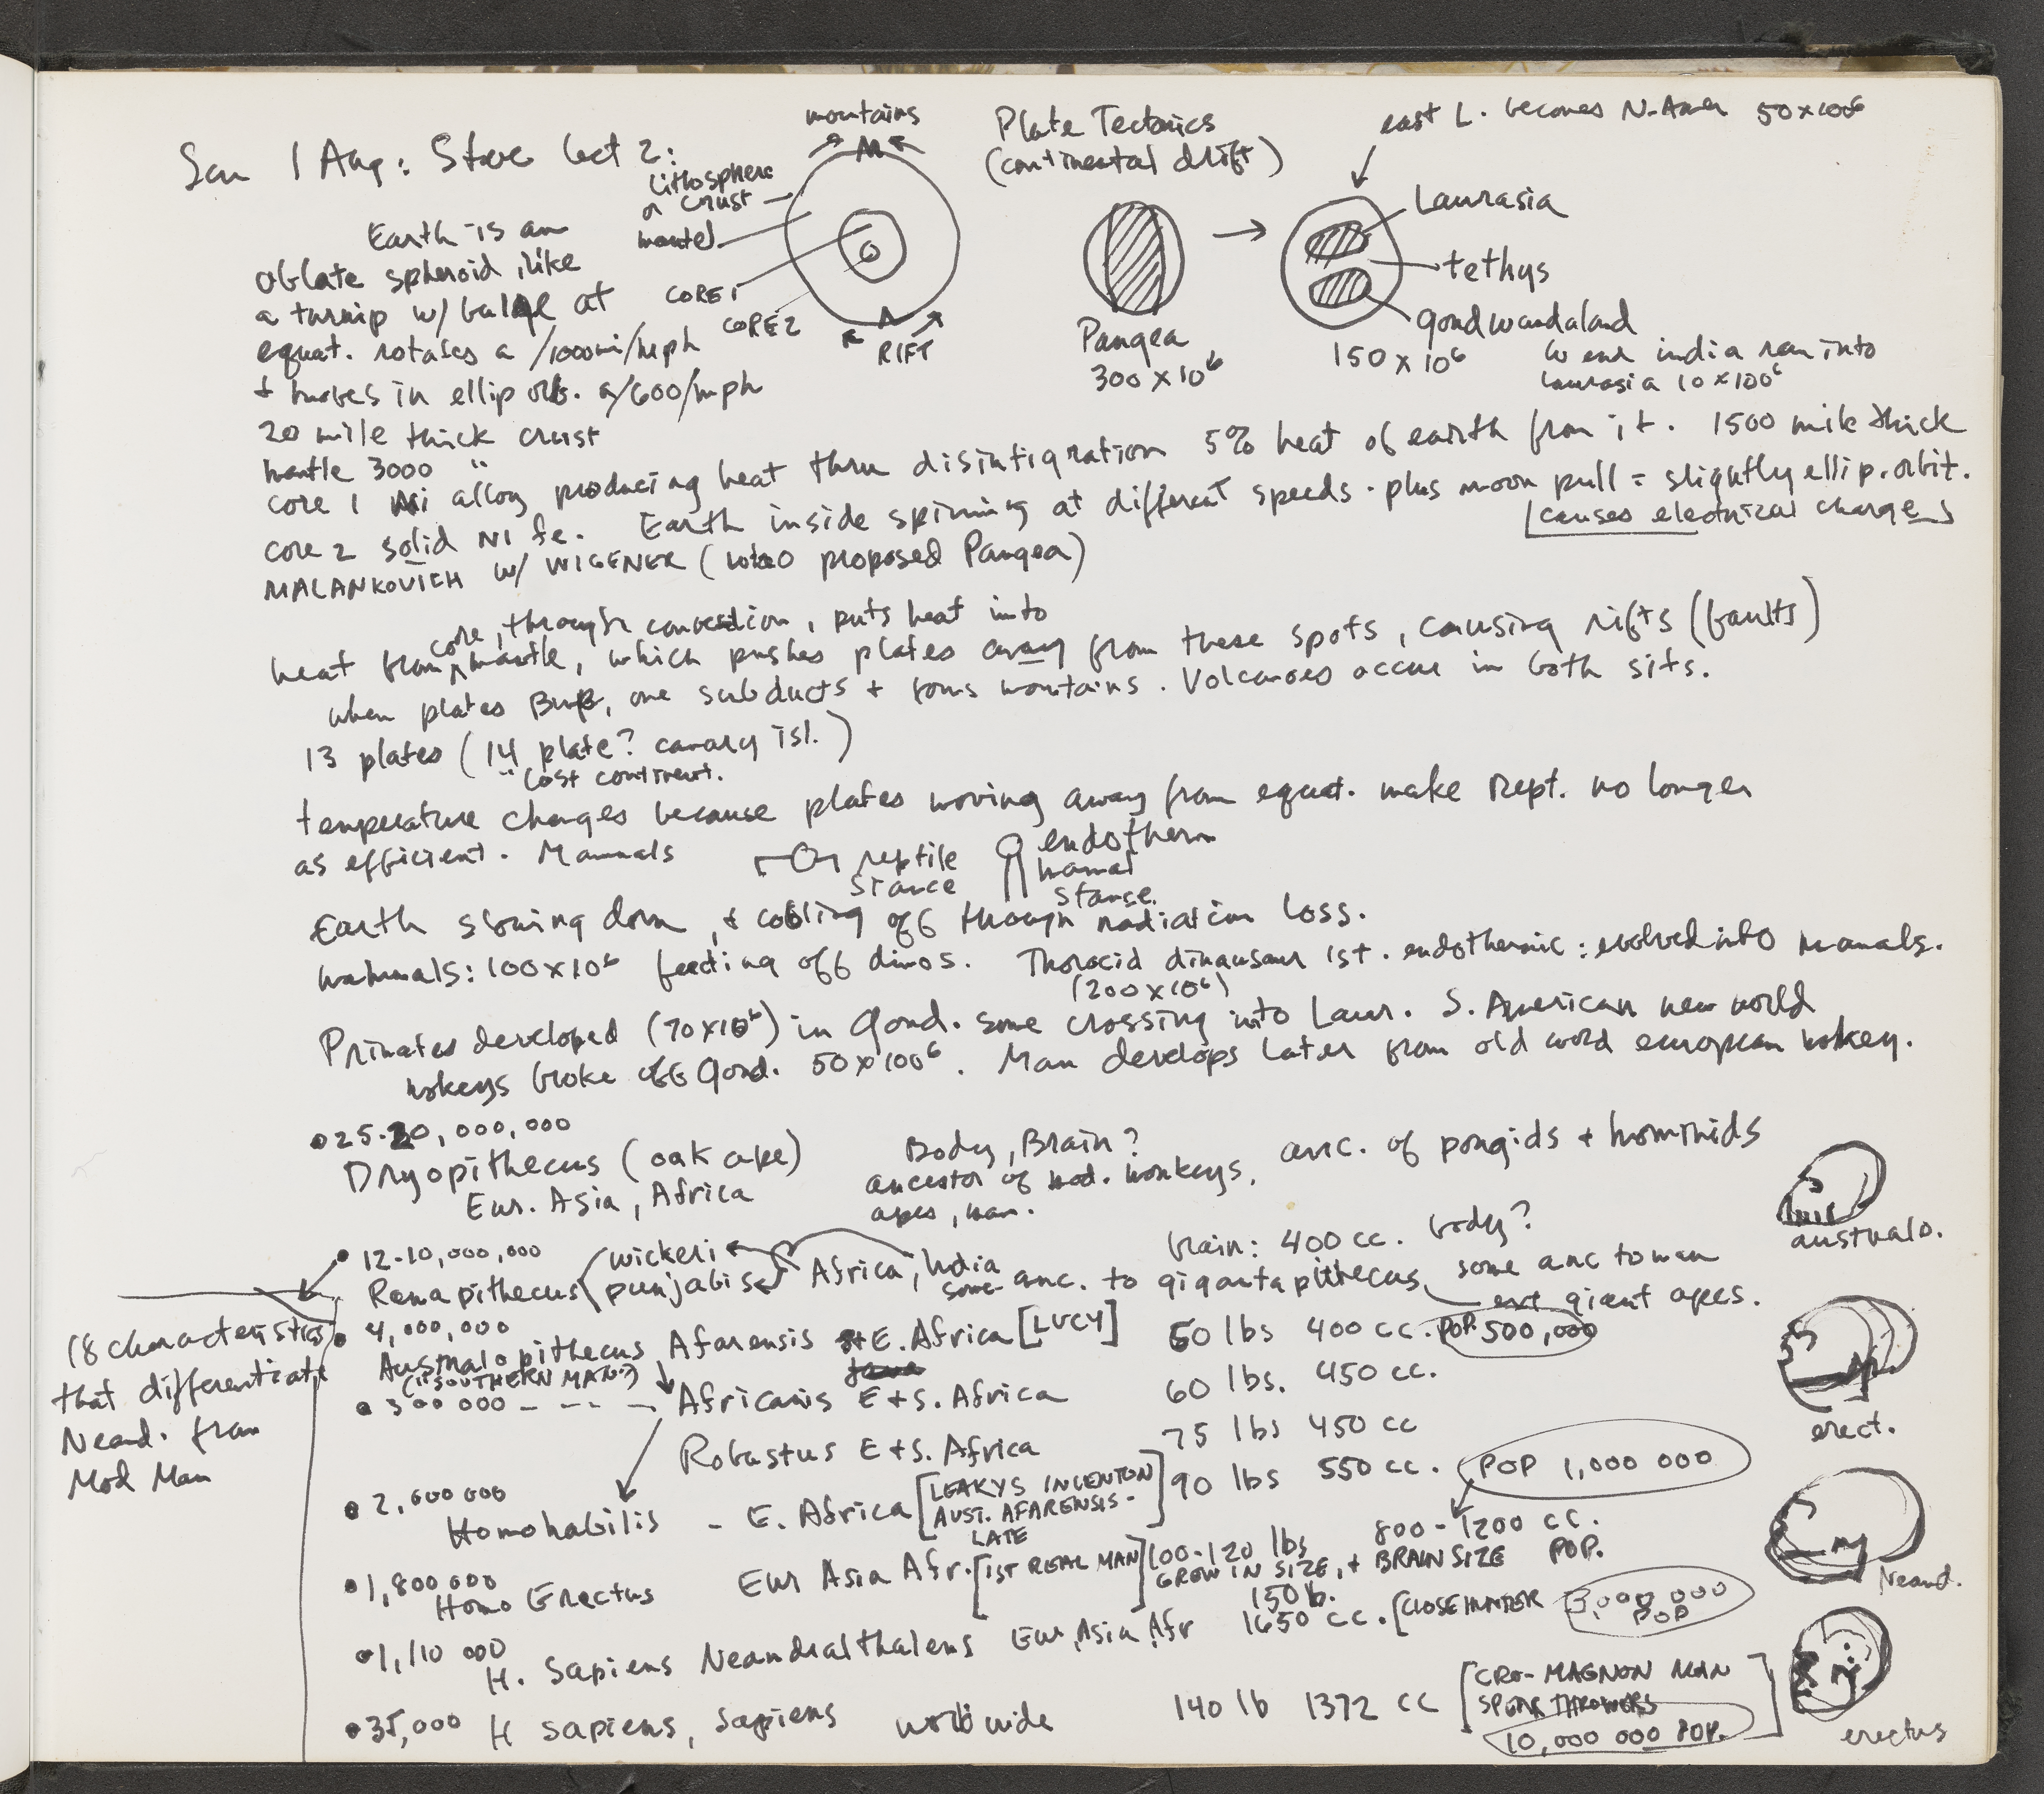 Sun 1 Aug: Steve lect 2:
mountains
Lithosphere
or crust
mantel
CORE1
CORE2
RIFT
Plate Tectonics
(continental drift)
Pangea
300 x 10⁶
east L. becomes N. Amer 50x10⁶
Laurasia
tethys
gondwandaland
150 x 10⁶
india ran into
Laurasia 10 x 100⁶
Earth is an
oblate spheroid, like
a turnip w/ bulge at
equat. rotates a /1000mi/mph
+ moves in ellip orb. a/600/mph
20 mile thick crust
mantle 3000 "
core 1 Ni alloy producing heat thru disintigration 5% heat of earth from it. 1500 mile thick
core 2 solid NI fe. Earth inside spinning at different speeds. plus moon pull = slightly ellip. orbit.
causes electrical charges
MALANKOVICH w/ WIGENER (who proposed Pangea)
core, through convection, puts heat into
heat from mantle, which pushes plates away from these spots, causing rifts (faults)
when plates Bump, one subducts + forms mountains. Volcanoes occur in both sits.
13 plates (14 plate? canary isl.)
"Lost continent.
temperature changes because plates moving away from equat. make rept. no longer
as efficient. Mammals
reptile
stance
endotherm
mamal
stanse.
Earth slowing down, & cooling off though radiation loss.
mammals: 100x10⁶ feeding off dinos. Thoracid dinausaur 1st. endothermic: evolved into mamals.
(200x10⁶)
Primates developed (70x10⁶) in Gond. some crossing into Laur. S. American new world
mokeys broke off Gond. 50x100⁶. Man develops later from old world european mokey.
25-20,000,000
Dryopithecus (oak ape)
Eur. Asia, Africa
Body, Brain?
ancestor of mod. monkeys,
apes, man.
anc. of pongids + hominids
australo.
12-10,000,000
Ramapithecus wickeri
punjabis
Africa, India
brain: 400 cc. body?
some anc. to gigantapithecus some anc to man
ext giant apes.
18 characteristics
that differentiate
Neand. from
Mod Man
4,000,000
Australopithecus Afarensis E. Africa [LUCY] 60 lbs 400 cc. POP. 500,000
("SOUTHERN MAN")
300 000 - - - - Africanis E+S. Africa 60 lbs. 450 cc.
Robastus E+S. Africa 75 lbs 450 cc
erect.
2,000 000
Homohabilis - E. Africa [LEAKYS INVENTION
AUST. AFARENSIS -
LATE] 90 lbs 550 cc. POP 1,000 000
1,800 000
Homo Erectus Eur Asia Afr. [1ST REAL MAN] 100-120 lbs 800-1200 cc.
GROW IN SIZE, + BRAIN SIZE POP.
Neand.
1,110 000
H. Sapiens Neandralthalens Eur, Asia, Afr 150 lb. 1650 cc. [CLOSE HUNTER 3,000 000
POP
35,000 H sapiens, sapiens worldwide 140 lb 1372 cc [CRO-MAGNON MAN
SPEAR THROWERS
10,000 000 POP.]
erectus